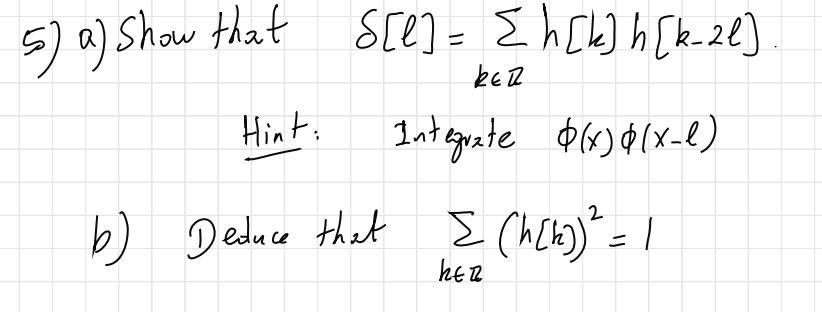 5) a) Show that δ[l] = Σ h[k] h[k-2l].
k∈ℤ
Hint: Integrate ϕ(x) ϕ(x-l)
b) Deduce that Σ (h[k])² = 1
k∈ℤ